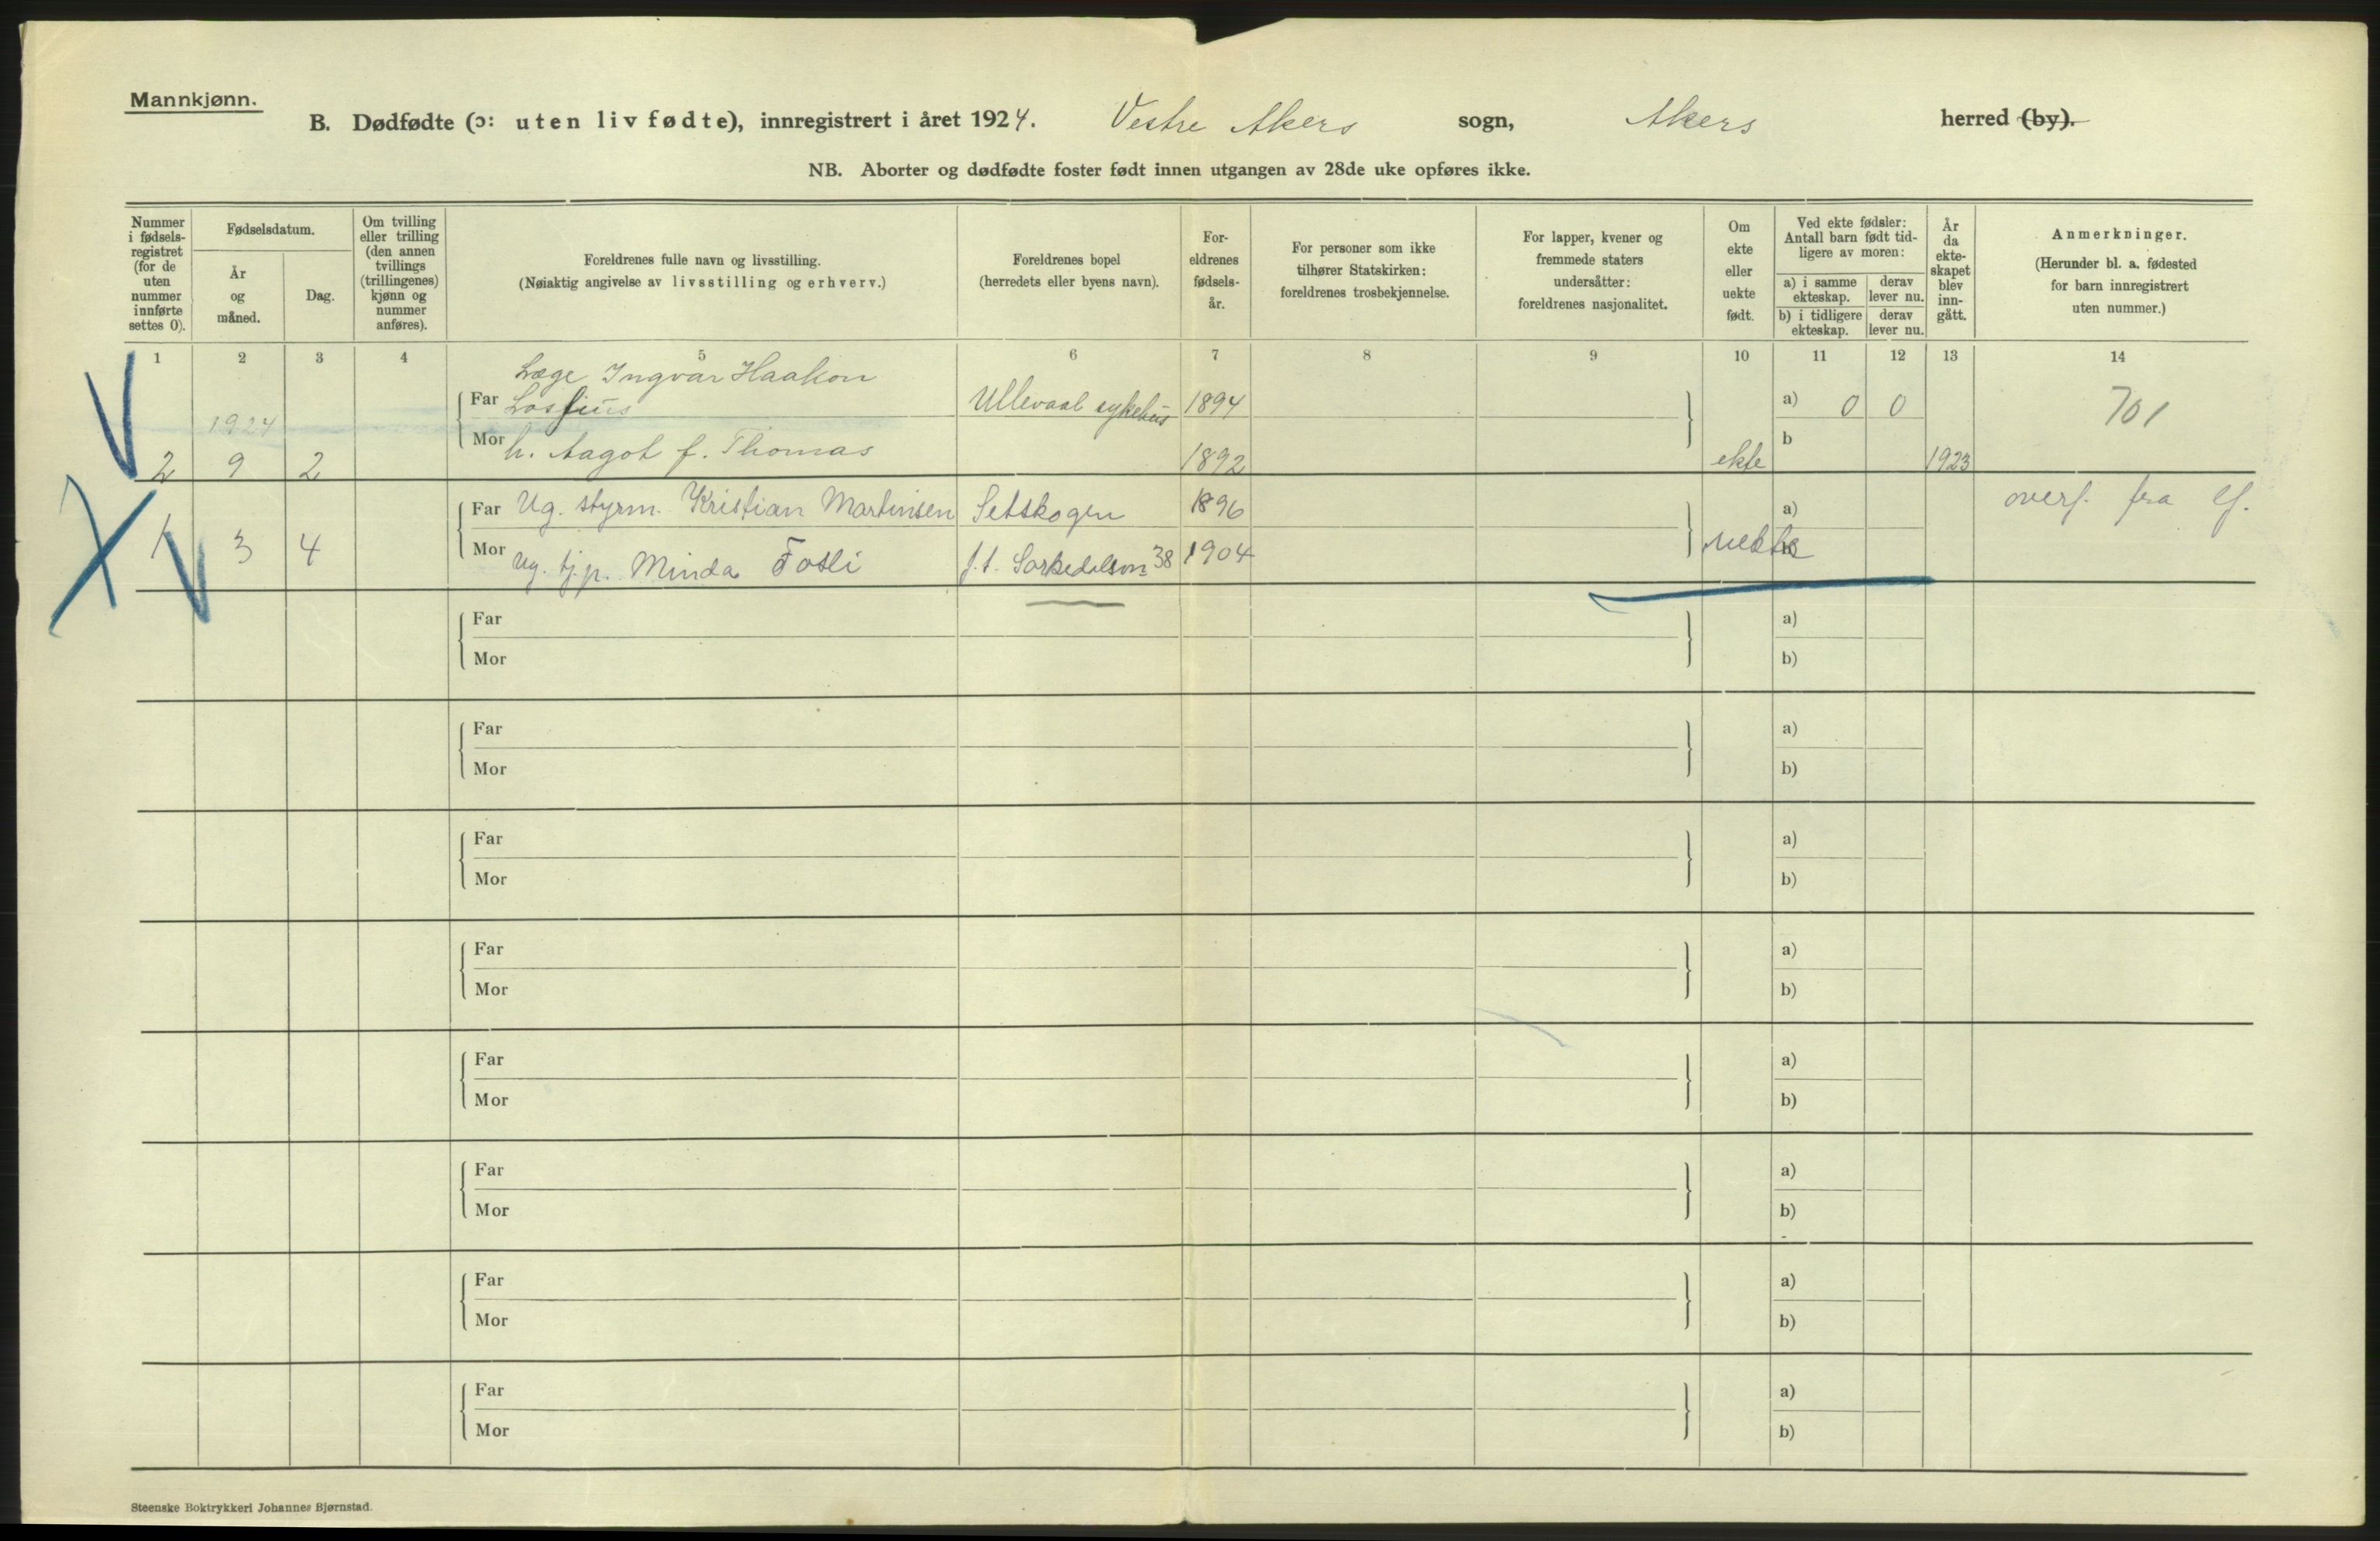 Mannkjønn.
B. Dødfødte (ɔ: uten liv fødte), innregistrert i året 1924. Vestre Akers sogn, Akers herred (by).
NB. Aborter og dødfødte foster født innen utgangen av 28de uke opføres ikke.
Nummer i fødsels-registret (for de uten nummer innførte settes 0).
Fødselsdatum.
År og måned.
Dag.
Om tvilling eller trilling (den annen tvillings (trillingenes) kjønn og nummer anføres).
Foreldrenes fulle navn og livsstilling.
(Nøiaktig angivelse av livsstilling og erhverv.)
Foreldrenes bopel
(herredets eller byens navn).
For-eldrenes fødsels-år.
For personer som ikke tilhører Statskirken: foreldrenes trosbekjennelse.
For lapper, kvener og fremmede staters undersåtter: foreldrenes nasjonalitet.
Om ekte eller uekte født.
Ved ekte fødsler: Antall barn født tid-ligere av moren:
a) i samme ekteskap.
derav lever nu.
b) i tidligere ekteskap.
derav lever nu.
År da ekte-skapet blev inn-gått.
Anmerkninger.
(Herunder bl. a. fødested for barn innregistrert uten nummer.)
1 2 3 4 5 6 7 8 9 10 11 12 13 14
Læge Ingvar Haakon
Far Lossius Ullevaal sykehus 1894 a) 0 0 701
1924
Mor h. Aagot f. Thomas b
2 9 2 1892 ekte 1923
Far Ug. styrm. Kristian Martinsen Setskogen 1896 a) overf. fra
1 3 4 Mor ug. tj.p. Minda Fosli 38 1904 uekte
Far a)
Mor b)
Far a)
Mor b)
Far a)
Mor b)
Far a)
Mor b)
Far a)
Mor b)
Far a)
Mor b)
Far a)
Mor b)
Far a)
Mor b)
Steenske Boktrykkeri Johannes Bjørnstad.